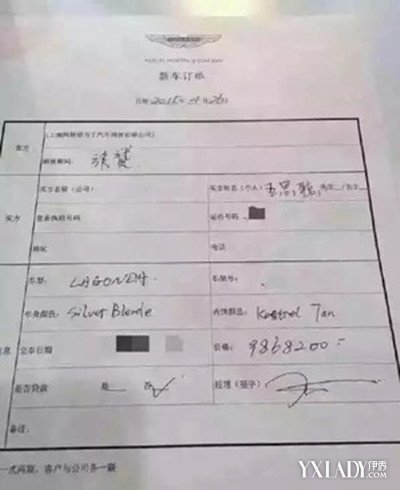 新车订单
日期 2015年
卖方
(上海阿斯顿马丁汽车销售有限公司)
销售顾问:
买方
买方名称(公司)
买方姓名(个人) 王思聪 先生 /女士
营业执照号码
证件号码
地址
电话
车型: LAGONDA
车架号:
车身颜色: Silver Blonde
内饰颜色: Kestrel Tan
信息
交车日期
价格: 9868200
是否贷款 是 否 ✓
经理(签字)
备注:
一式两联,客户与公司各一联
YXLADY伊秀
.com